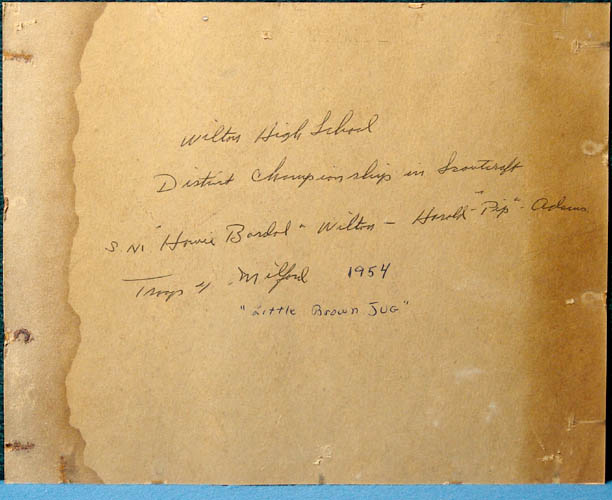 Wilton High School
District Championship in Scoutcraft
S.M. "Howie Bardol" Wilton - Harold "Pip" Adams
Troop 4 Milford 1954
"Little Brown JUG"